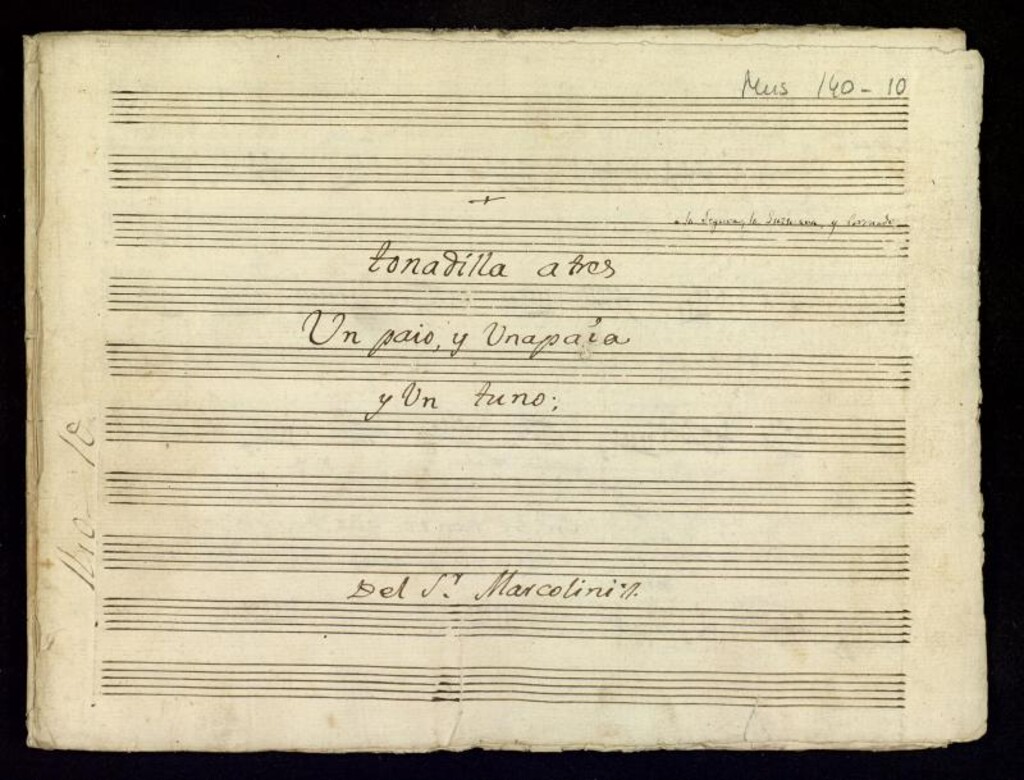 Mus 140-10
+
la Segura, la Guzmana, y Coronado
tonadilla a tres
Un paio, y Una paia
y Un tuno;
140-10
Del Sr. Marcolini